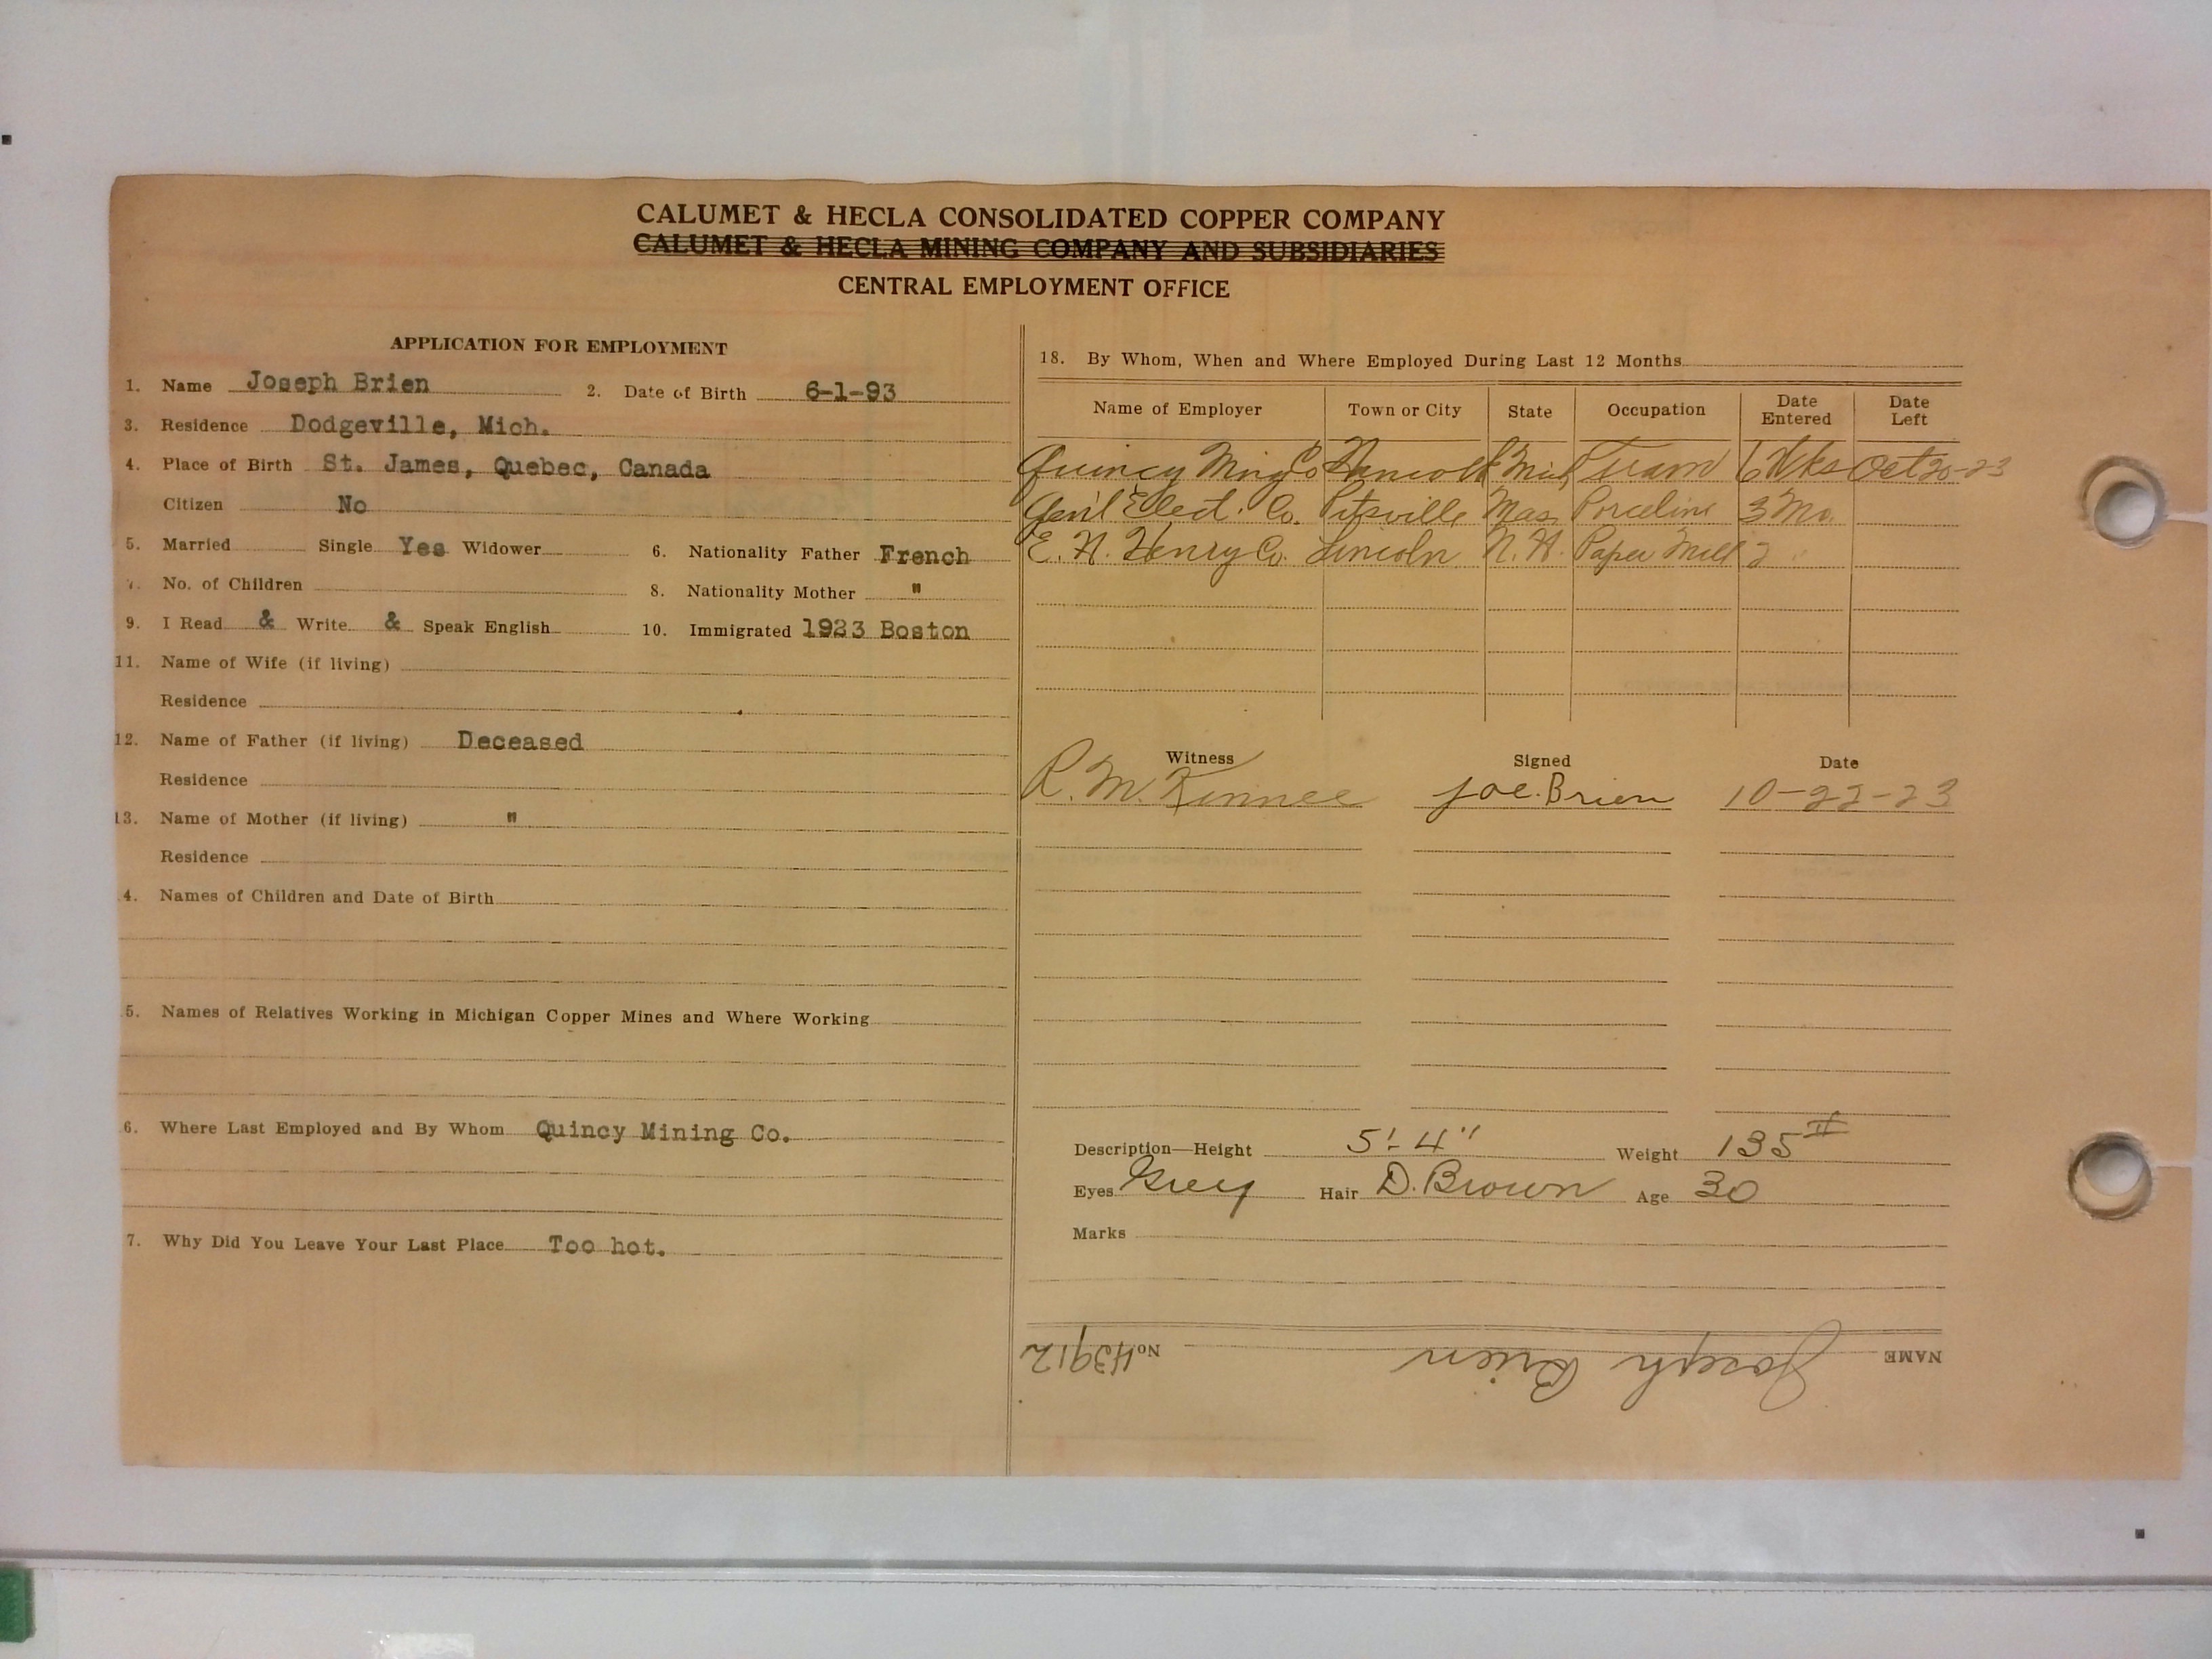 CALUMET & HECLA CONSOLIDATED COPPER COMPANY
CALUMET & HECLA MINING COMPANY AND SUBSIDIARIES
CENTRAL EMPLOYMENT OFFICE
APPLICATION FOR EMPLOYMENT
1. Name Joseph Brien 2. Date of Birth 6-1-93
3. Residence Dodgeville, Mich.
4. Place of Birth St. James, Quebec, Canada
Citizen No
5. Married Single Yes Widower 6. Nationality Father French
7. No. of Children 8. Nationality Mother "
9. I Read & Write & Speak English 10. Immigrated 1923 Boston
11. Name of Wife (if living)
Residence
12. Name of Father (if living) Deceased
Residence
13. Name of Mother (if living) "
Residence
4. Names of Children and Date of Birth
5. Names of Relatives Working in Michigan Copper Mines and Where Working
6. Where Last Employed and By Whom Quincy Mining Co.
7. Why Did You Leave Your Last Place Too hot.
18. By Whom, When and Where Employed During Last 12 Months
Name of Employer Town or City State Occupation Date Entered Date Left
Quincy Mng Co Hancock Mich Tram 6 Wks Oct 20-23
Gen'l Elect. Co. Pitsville Mas Porceline 3 Mo.
E. H. Henry Co. Lincoln N.H. Paper Mill 2 "
Witness Signed Date
R. M. Kinnee Joe. Brien 10-22-23
Description—Height 5'-4" Weight 135#
Eyes Grey Hair D. Brown Age 30
Marks
NAME Joseph Brien No. 43912